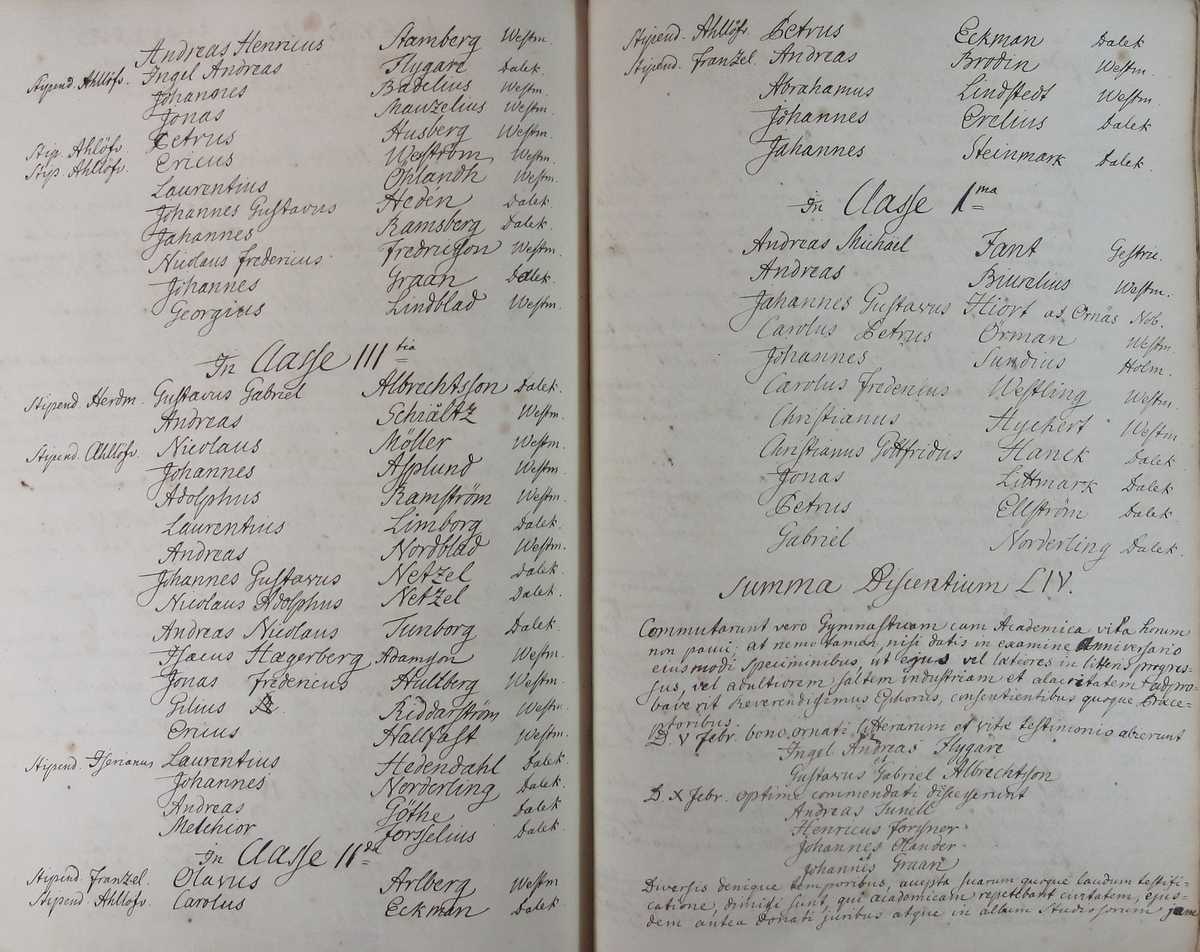 Andreas Henricus Stamberg Westm.
Stipend. Ahllöfs. Ingel Andreas Flygare Dalek.
Johannes Badelius Westm.
Jonas Mauzelius Westm.
Petrus Husberg Westm.
Stip. Ahllöfs. Ericus Westm.
Stip. Ahllöfs. Laurentius Öhlandh Westm.
Johannes Gustavus Hedén Dalek.
Jahannes Ramsberg Dalek.
Nicolaus Fredericus Fredricsson Westm.
Johannes Graan Dalek.
Georgius Lindblad Westm.
In Classe III tia
Stipend. Herdm. Gustavus Gabriel Albrechtsson Dalek.
Andreas Schiältz Westm.
Stipend. Ahllöfs. Nicolaus Möller Westm.
Johannes Asplund Westm.
Adolphus Ramström Westm.
Laurentius Limborg Dalek.
Andreas Nordblad Westm.
Johannes Gustavus Netzel Dalek.
Nicolaus Adolphus Netzel Dalek.
Andreas Nicolaus Tunborg Dalek.
Isacus Hagerberg Adamsson Westm.
Jonas Fredericus Hultberg Westm.
Gilius Riddarström Westm.
Ericus Hallfast Westm.
Stipend. Iserianus Laurentius Hedendahl Dalek.
Johannes Norderling Dalek.
Andreas Göthe Dalek.
Melchior Forsselius Dalek.
In Classe II da
Stipend. Franzel. Olavus Arlberg Westm.
Stipend. Ahllöfs. Carolus Eckman Dalek.
Stipend. Ahllöfs. Petrus Eckman Dalek.
Stipend. Franzel. Andreas Brodin Westm.
Abrahamus Lindstedt Westm.
Johannes Erelius Dalek.
Jahannes Steinmark Dalek.
In Classe I ma
Andreas Michaël Fant Gestric.
Andreas Biurelius Westm.
Jahannes Gustavus Hiort as Ornäs Nob.
Carolus Petrus Örman Westm.
Johannes Sundius Holm.
Carolus Fredericus Westling Westm.
Christianus Hyckert Westm.
Christianus Gottfridus Hanck Dalek
Jonas Littmark Dalek
Petrus Ellström Dalek.
Gabriel Norderling Dalek.
Summa Discentium LIV.
Commutarunt vero Gymnasticam cum Academica vita horum
non pauci; at nemo tamen, nisi datis in examine anniversario
eiusmodi speciminibus, ut ejus vel lætiores in litteris progres-
sus, vel adultiorem saltem industriam et alacritatem adpro-
baverit Reverendissimus Ephorus, consentientibus quoque Præce-
ptoribus.
D. V Febr. bono ornati litterarum et vitæ testimonio abierunt
Ingel Andreas Flygare
et
Gustavus Gabriel Albrechtson
D. X Febr. optime commendati discesserunt
Andreas Tunell
Henricus Forssner
Johannes Olander
Johannes Graan
Diversis denique temporibus, aucta suarum quoque laudum testifi-
catione, dimissi sunt, qui academicam repetebant civitatem, ejus-
dem antea donati juribus atque in album Studiosorum jam